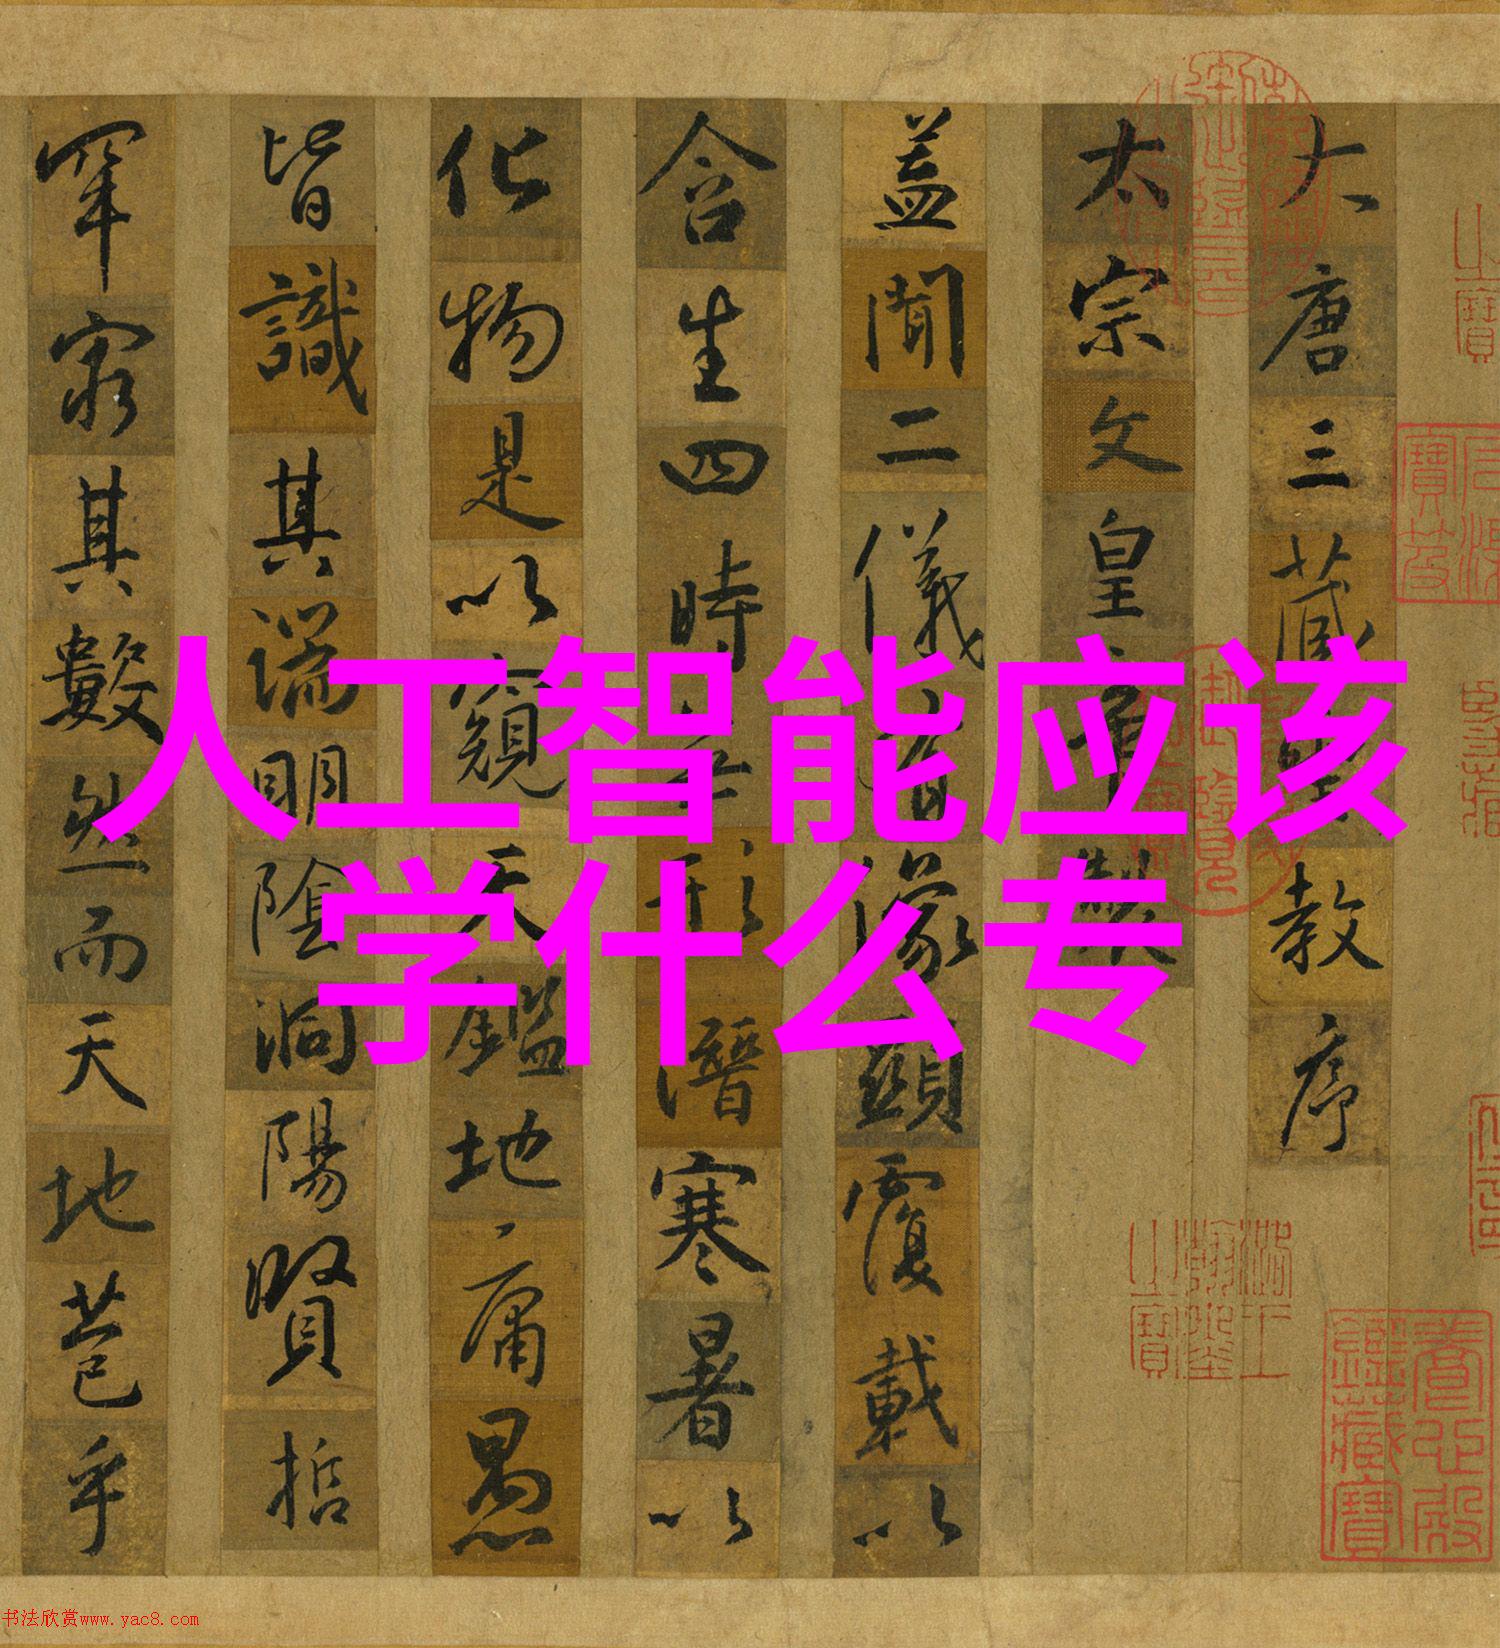 大唐三藏聖教序
太宗文皇帝製
蓋聞二儀有像顯覆載以
含生四時無形潛寒暑以
化物是以窺天鑑地庸愚
皆識其端明陰洞陽賢哲
罕窮其數然而天地苞乎
人工智能应该
学什么专
之寶
養心殿
鑑藏寶
书法欣赏www.yac8.com